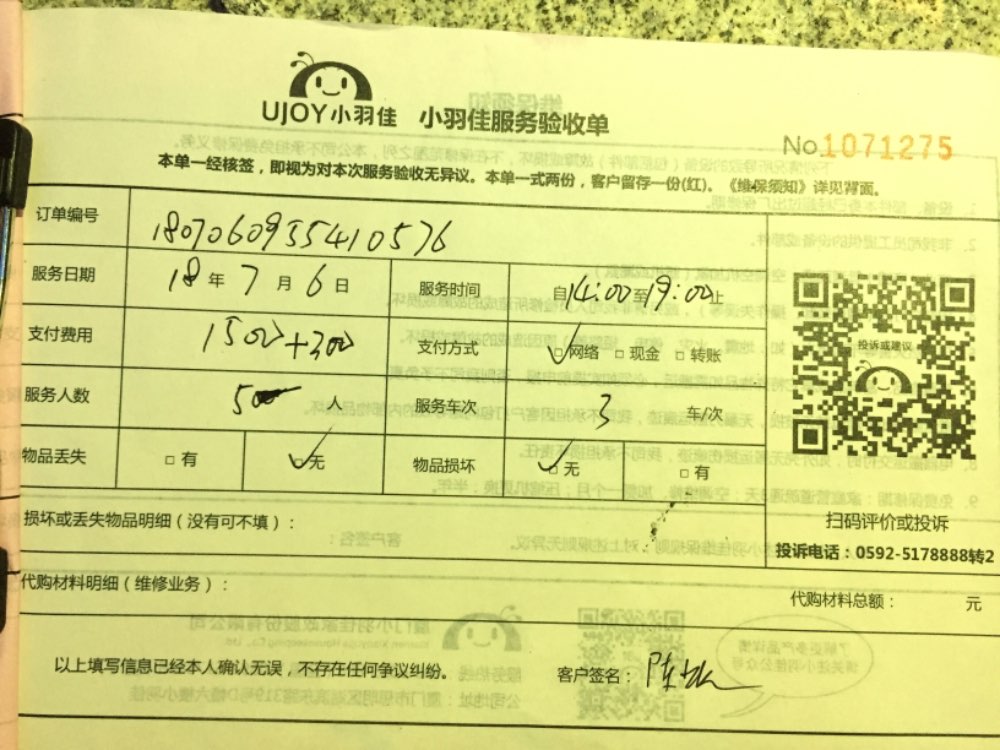 UJOY小羽佳 小羽佳服务验收单
No 1071275
本单一经核签，即视为对本次服务验收无异议。本单一式两份，客户留存一份(红)。《维保须知》详见背面。
订单编号 1807060955410576
服务日期 18 年 7 月 6 日 服务时间 自14:00至19:00止
支付费用 1500+300 支付方式 ☑网络 □现金 □转账
服务人数 5 人 服务车次 3 车/次
物品丢失 □有 ☑无 物品损坏 ☑无 □有
投诉或建议
扫码评价或投诉
投诉电话：0592-5178888转2
损坏或丢失物品明细（没有可不填）：
代购材料明细（维修业务）：
代购材料总额： 元
以上填写信息已经本人确认无误，不存在任何争议纠纷。 客户签名：陈